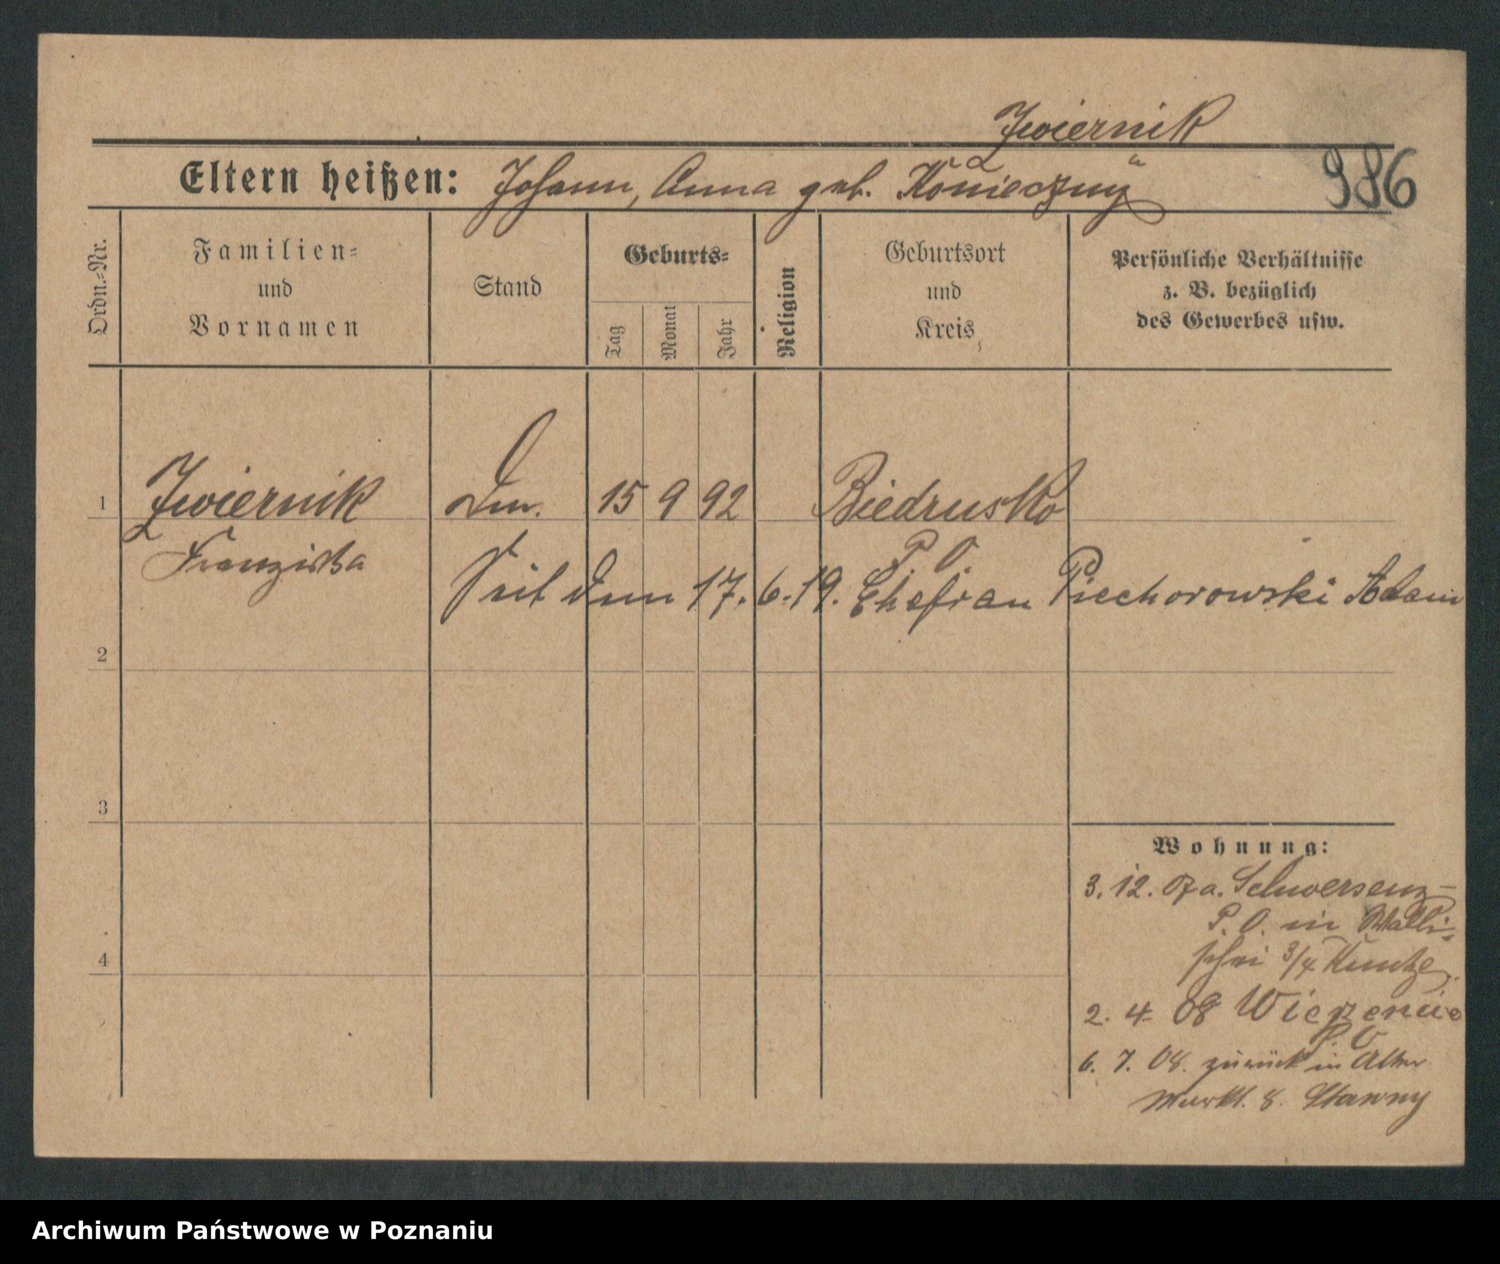 Zwiernik
986
Eltern heißen: Johann, Anna geb. Konieczny
Ordn.-Nr.
Familien-
und
Vornamen
Stand
Geburts-
Tag
Monat
Jahr
Religion
Geburtsort
und
Kreis
Persönliche Verhältnisse
z. B. bezüglich
des Gewerbes usw.
1 Zwiernik 15 9 92 Biedrusko
Franziska P. O.
Seit dem 17. 6. 19. Ehefrau Piechorowski Adam
2
3
4
Wohnung:
3. 12. 07 a. Schwersenz
P. O. in Walli-
schei 3/4 Kuntze
2. 4. 08
P. O.
6. 7. 08. zurück in Alter
Markt. 8. Stawny
Archiwum Państwowe w Poznaniu